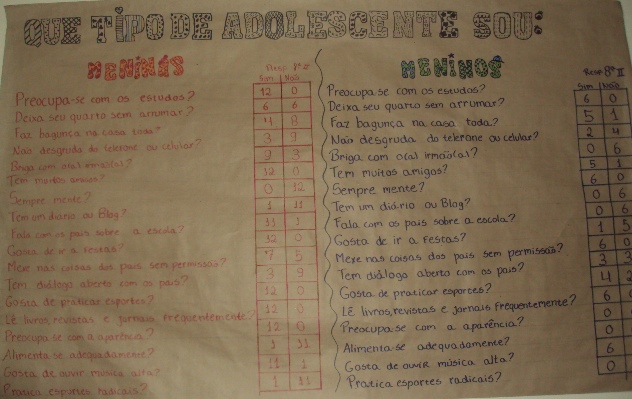 QUE TIPO DE ADOLESCENTE SOU:
MENINAS
Resp. 8º II
Sim Não
Preocupa-se com os estudos? 12 0
Deixa seu quarto sem arrumar? 6 6
Faz bagunça na casa toda? 4 8
Não desgruda do telefone ou celular? 3 9
Briga com o(a) irmão(a)? 9 3
Tem muitos amigos? 12 0
Sempre mente? 0 12
Tem um diário ou Blog? 1 11
Fala com os pais sobre a escola? 11 1
Gosta de ir a Festas? 12 0
Mexe nas coisas dos pais sem permissão? 7 5
Tem diálogo aberto com os pais? 3 9
Gosta de praticar esportes? 12 0
Lê livros, revistas e jornais frequentemente? 12 0
Preocupa-se com a aparência? 12 0
Alimenta-se adequadamente? 1 11
Gosta de ouvir música alta? 11 1
Pratica esportes radicais? 1 11
MENINOS
Resp 8º II
Sim Não
Preocupa-se com os estudos? 6 0
Deixa seu quarto sem arrumar? 5 1
Faz bagunça na casa toda? 2 4
Não desgruda do telefone ou celular? 0 6
Briga com o(a) irmão(a)? 5 1
Tem muitos amigos? 6 0
Sempre mente? 0 6
Tem um diário ou Blog? 0 6
Fala com os pais sobre a escola? 1 5
Gosta de ir a Festas? 6 0
Mexe nas coisas dos pais sem permissão? 3 3
Tem diálogo aberto com os pais? 4 2
Gosta de praticar esportes? 6
Lê livros, revistas e jornais frequentemente? 0
Preocupa-se com a aparência?
Alimenta-se adequadamente? 0
Gosta de ouvir música alta? 6
Pratica esportes radicais? 0